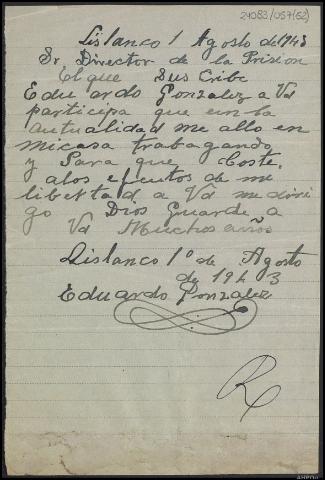 24083/057(62)
Lislanco 1 Agosto de 1943
Sr Director de la Prision
El que Sus Cribe
Eduardo Gonzalez a Vd
participa que en la
autualidad me allo en
micasa trabagando
y Para que Coste,
alos efeutos de mi
libertad a Vd me diri
go Dios Guarde a
Vd Muchos años
Lislanco 1º de Agosto
de 1943
Eduardo Gonzalez
R